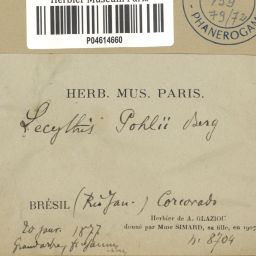 Herbier Muséum Paris
P04614660
PHANEROGAM
HERB. MUS. PARIS.
Lecythis Pohlii Berg
BRÉSIL (Rio Jan.) Corcovado
Herbier de A. GLAZIOU
donné par Mme SIMARD, sa fille, en 1907
20 janv. 1877
n. 8704